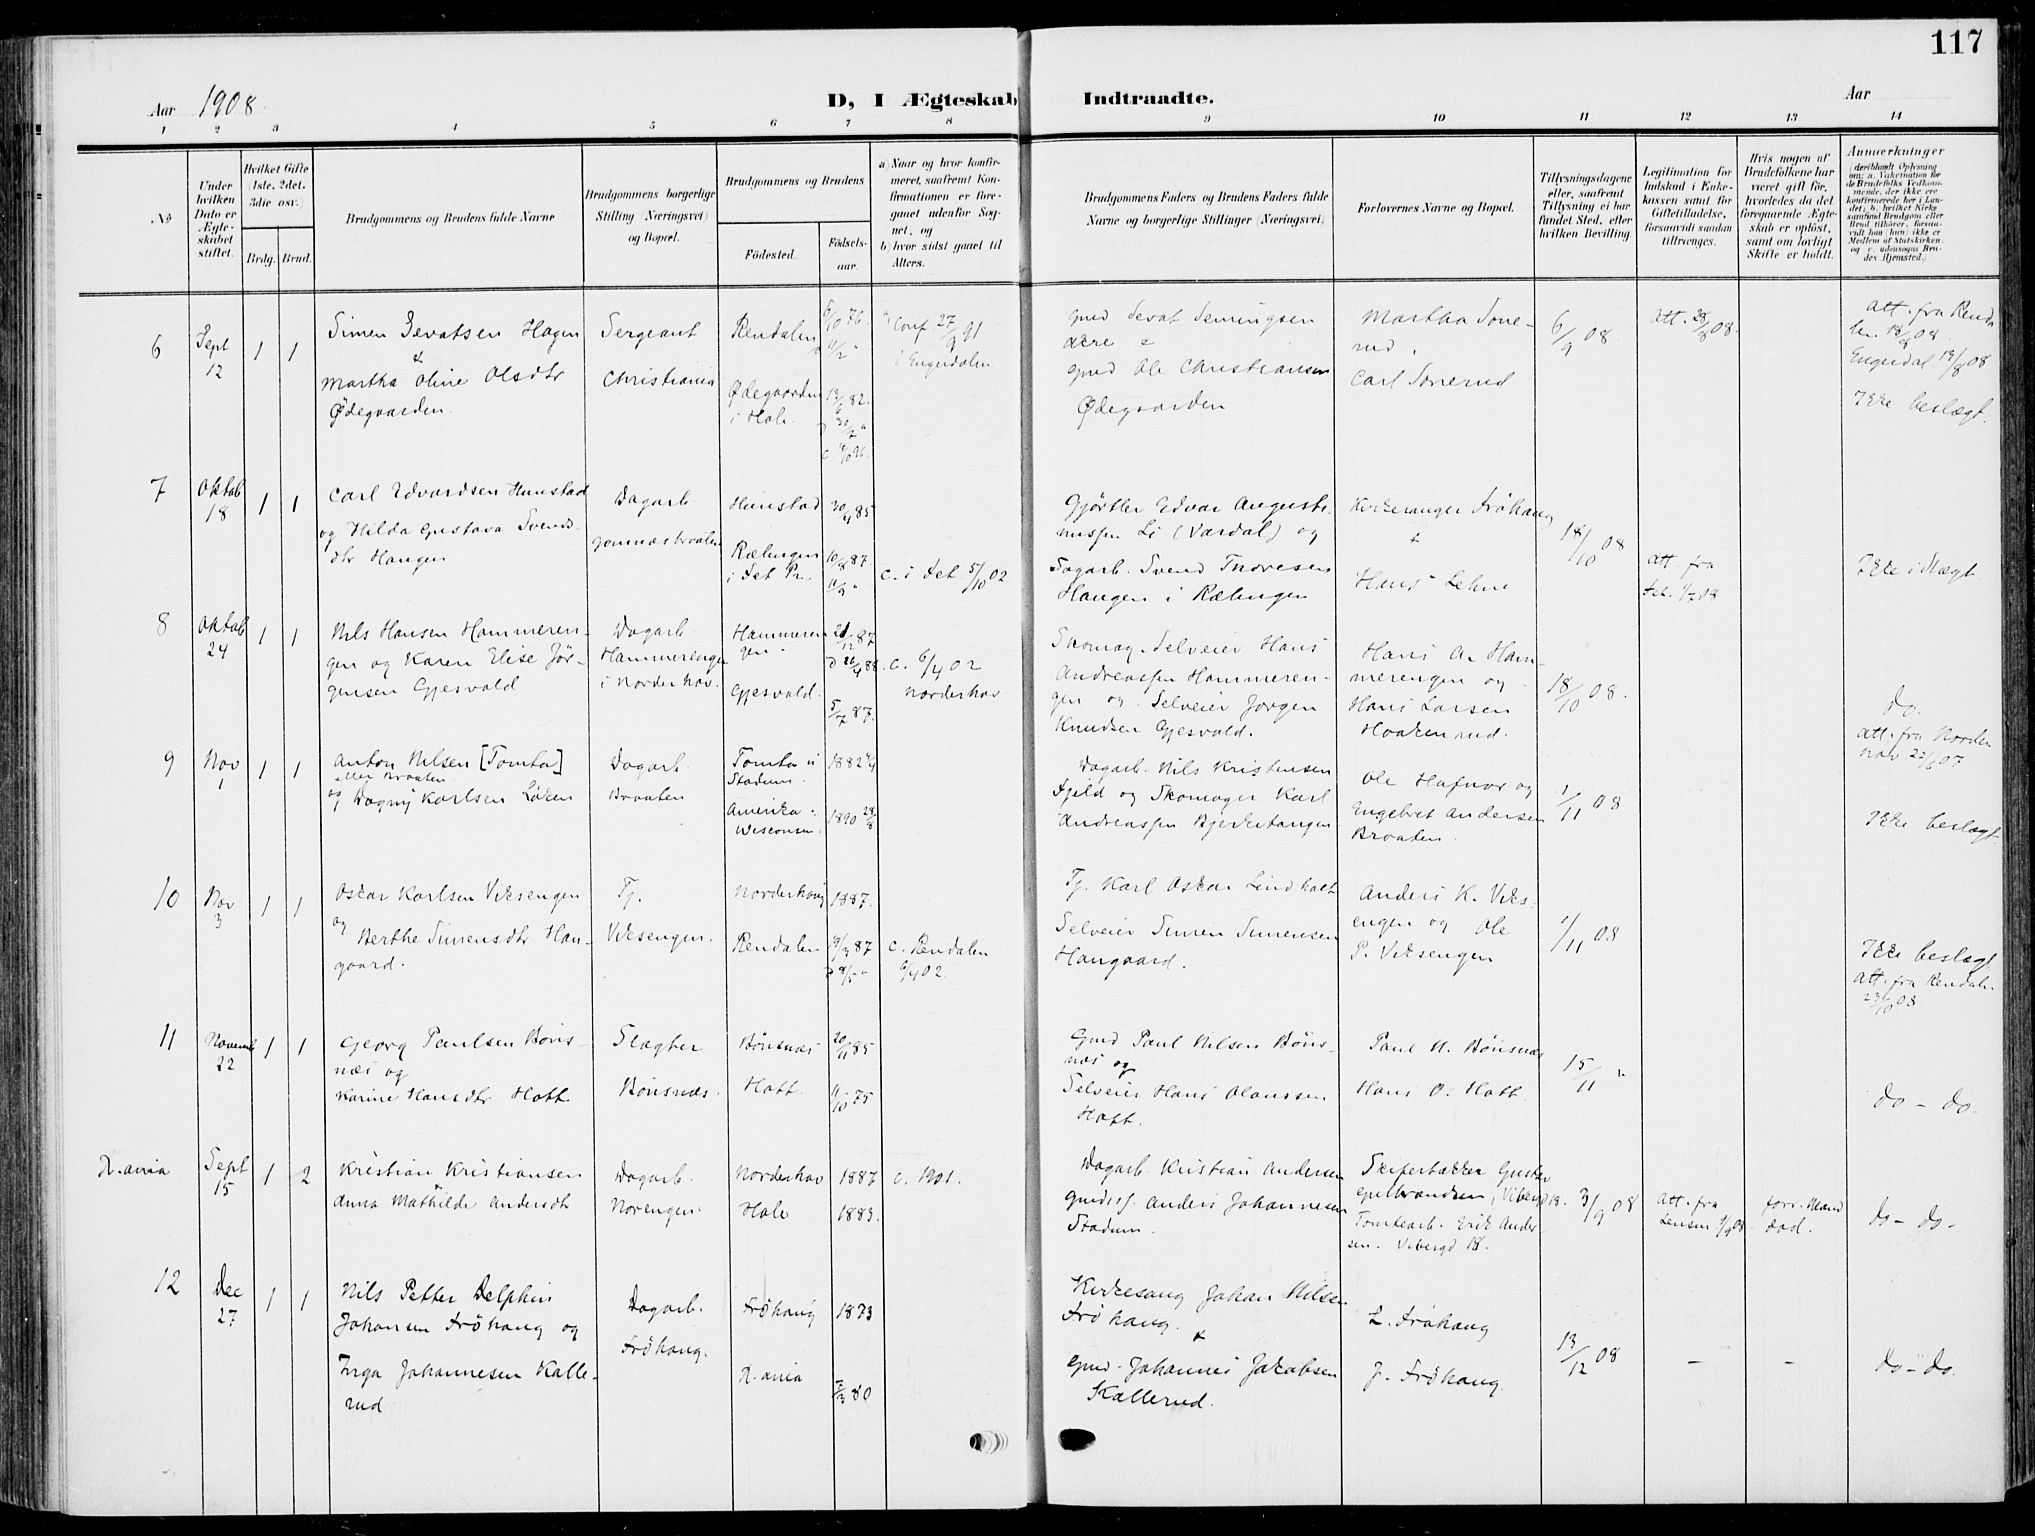 117
Aar 1908
D, I Ægteskab Indtraadte.
Aar
1 2 3 4 5 6 7 8 9 10 11 12 13 14
No
Under hvilken Dato er Ægteskabet stiftet.
Hvilket Gifte (1ste, 2det, 3die osv.)
Brdg. Brud.
Brudgommens og Brudens fulde Navne
Brudgommens borgerlige Stilling (Næringsvei) og Bopæl.
Brudgommens og Brudens
Fødested.
Fødselsaar.
a) Naar og hvor konfirmeret, saafremt Konfirmationen er foregaaet udenfor Sognet, og
b) hvor sidst gaaet til Alters.
Brudgommens Faders og Brudens Faders fulde Navne og borgerlige Stillinger (Næringsvei)
Forlovernes Navne og Bopæl.
Tillysningsdagene eller, saafremt Tillysning ei har fundet Sted, efter hvilken Bevilling.
Legitimation for Indskud i Enkekassen samt for Giftetilladelse, forsaavidt saadan tiltrænges.
Hvis nogen af Brudefolkene har været gift før, hvorledes da det foregaaende Ægteskab er opløst, samt om lovligt Skifte er holdt.
Anmærkninger
(deriblandt Oplysning om: a. Vakcination for de Brudefolks Vedkommende, der ikke ere konfirmerede her i Landet; b. hvilket Kirkesamfund Brudgom eller Brud tilhører, forsaavidt han (hun) ikke er Medlem af Statskirken, og c. udensogns Brudes Hjemsted.)
6
Sept
12
1 1
Simen Sevatsen Hagen
&
Martha Oline Olsdtr
Ødegaarden.
Sergeant
Christiania
Rendalen
Ødegaarden
i Hole.
6/10 76.
13/6 82.
a) Conf 27/9 91
i Engerdalen
Gmd Sevat Semingsen
Gmd Ole Christiansen
Ødegaarden
Martha Sonerud.
Carl Sonerud
6/9 08
Att. 28/8 08.
Att. fra Rendalen 18/8 08
Engerdal 19/8 08
Ikke beslægt.
7
Oktob
18
1 1
Carl Edvardsen Hunstad
og Hilda Gustava Svendsdtr Haugen
Dagarb.
Gomnæsbraaten
Hunstad
Rælingen
i Fet Pr.
30/4 85
10/8 87
c. i Fet 5/10 02
Gjørtler Edvar Augustinussen Li (Vardal) og
Dagarb. Svend Thoresen
Haugen i Rælingen
Kirkesanger Frøhaug
&
Hans Lehne
18/10 08
Att. fra
Fet.
Ikke i Slægt
8
Oktob
24
1 1
Nils Hansen Hammerengen og Karen Elise Jørgensen Gjesvold
Dagarb.
Hammerengen
i Norderhov.
Hammerengen.
Gjesvold.
21/12 87
D 22/4 88
5/7 87.
c. 6/4 02
Norderhov
Skomag. Selveier Hans
Andreassen Hammerengen og Selveier Jørgen
Knudsen Gjesvold.
Hans A. Hammerengen og
Hans Larsen
Haakenrud.
18/10 08.
do.
Att. fra Norderhov
9
Nov
1
1 1
Anton Nilsen [Tomta]
eller Braaten
og Dagny Karlsen Løken
Dagarb.
Braaten
Tomta u
Stadum.
Amerika
Wisconsin.
1882
1890 28/8
Dagarb. Nils Kristensen
Fjeld og Skomager Karl
Andreassen Bjerketangen
Ole Hafnor og
Engebret Andersen
Braaten.
1/11 08
Ikke beslægt.
10
Nov
3
1 1
Oskar Karlsen Viksengen
og
Berthe Simensdtr Haugaard.
Tj.
Viksengen.
Norderhov
Rendalen
1887.
19/3 87
c. Rendalen
6/4 02
Tj. Karl Oskar Lindholt
Selveier Simen Simensen
Haugaard.
Anders K. Viksengen og Ole
P. Viksengen
1/11 08
Ikke beslægt
Att. fra Rendalen
23/10 08
11
Novemb
22
1 1
Georg Paulsen Bønsnæs og
Karine Hansdtr Hatt
Slagter
Bønsnæs.
Bønsnæs
Hatt.
20/11 85
11/10 75
Gmd Paul Nilsen Bønsnæs og
Selveier Hans Olaussen
Hatt.
Paul N. Bønsnæs
Hans O. Hatt
15/11 "
do - do.
K.ania
Sept
15
1 2
Kristian Kristiansen
Anna Mathilde Andersdtr
Dagarb.
Norengen.
Norderhov
Hole
1887
1883.
c. 1901.
Dagarb. Kristian Andersen
Anders Johannesen
Stadum.
Gulbrandsen, Vibergd 18.
Tomtearb. Erik Andersen. Vibergd 18.
3/9 08
Att. fra
forr. Mand
død.
do - do.
12
Dec
27
1 1
Nils Petter Delphin
Johansen Frøhaug og
Inga Johannesen Kallerud
Dagarb.
Frøhaug.
Frøhaug
K.ania
1873
7/3 80
Kirkesang. Johan Nilsen
Frøhaug.
&
Gmd. Johannes Jakobsen
Kallerud.
L. Frøhaug
J. Frøhaug.
13/12 08
-
-
do - do.